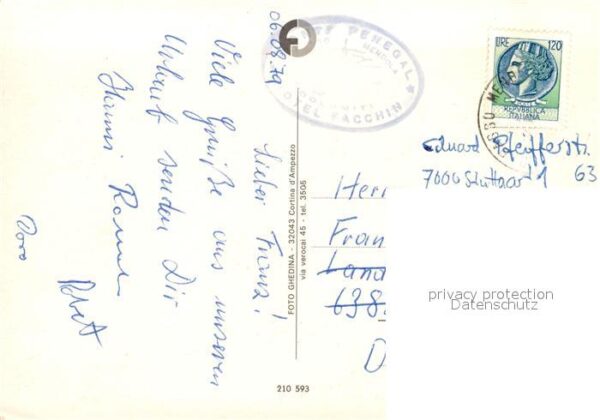 06.08.79
Lieber Franz!
Viele Grüße aus unserem
Urlaub senden Dir
Hanni
Doro
Robert
FOTO GHEDINA - 32043 Cortina d'Ampezzo
via verocai 45 - tel. 3505
210 593
PENEGAL
MENDOLA
HOTEL FACCHIN
LIRE 120
REPUBBLICA
ITALIANA
Eduard Pfeifferstr.
7000 Stuttgart 1 63
Herr
Fran
Land
638
D
privacy protection
Datenschutz